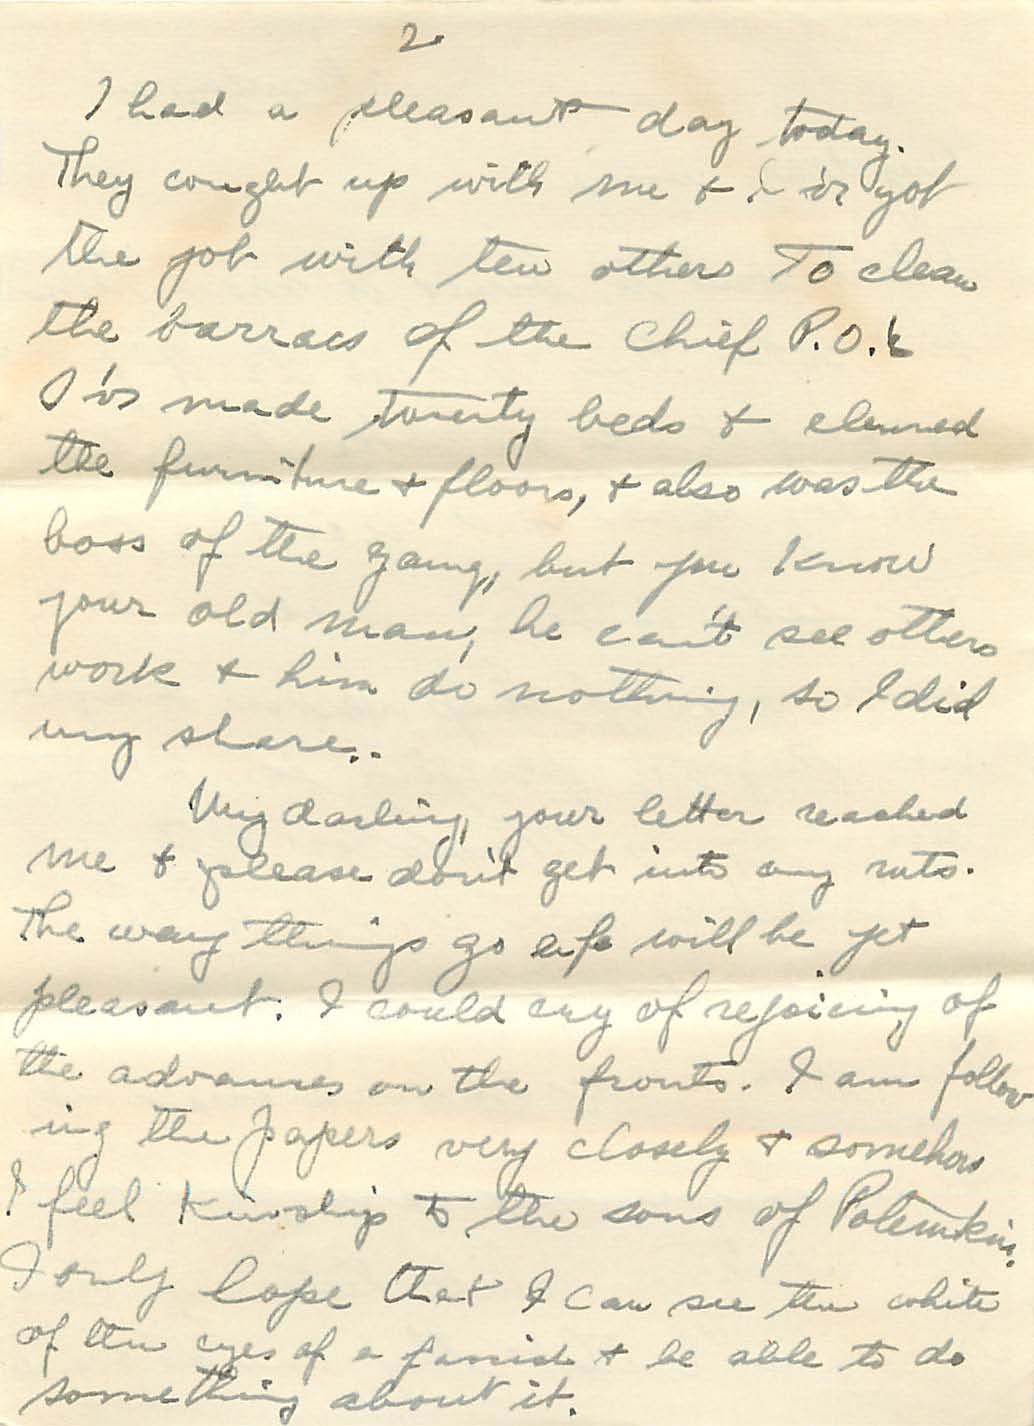 2.
I had a pleasant day today.
They cought up with me & I'v got
the job with ten others To clean
the barracs of the Chief P.O.'s
I'v made twenty beds & cleaned
the furniture & floors, & also was the
boss of the gang, but you know
your old man, he can't see others
work & him do nothing, so I did
my share..
My darling, your letter reached
me & please don't get into any ruts.
The way things go life will be yet
pleasant. I could cry of rejoicing of
the advances on the fronts. I am follow
ing the papers very closely & somehow
I feel kinship to the sons of Potemkin.
I only hope that I can see the white
of the eyes of a & be able to do
something about it.